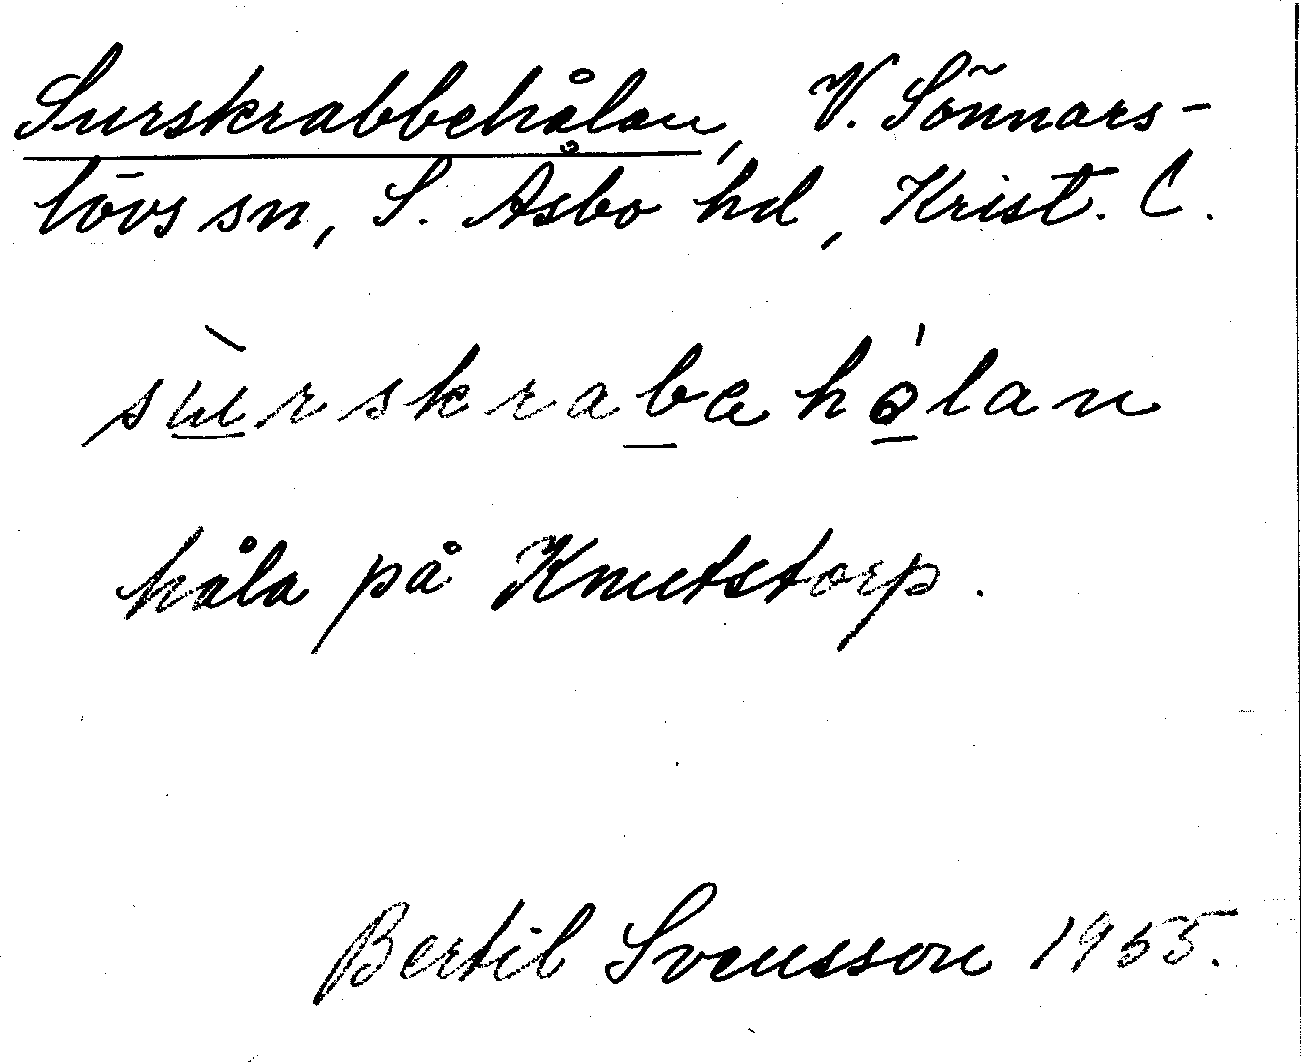 Surskrabbehålan, V. Sönnars-
lövs sn, S. Åsbo hd, Krist. l.
håla på Knutstorp.
Bertil Svensson 1955.